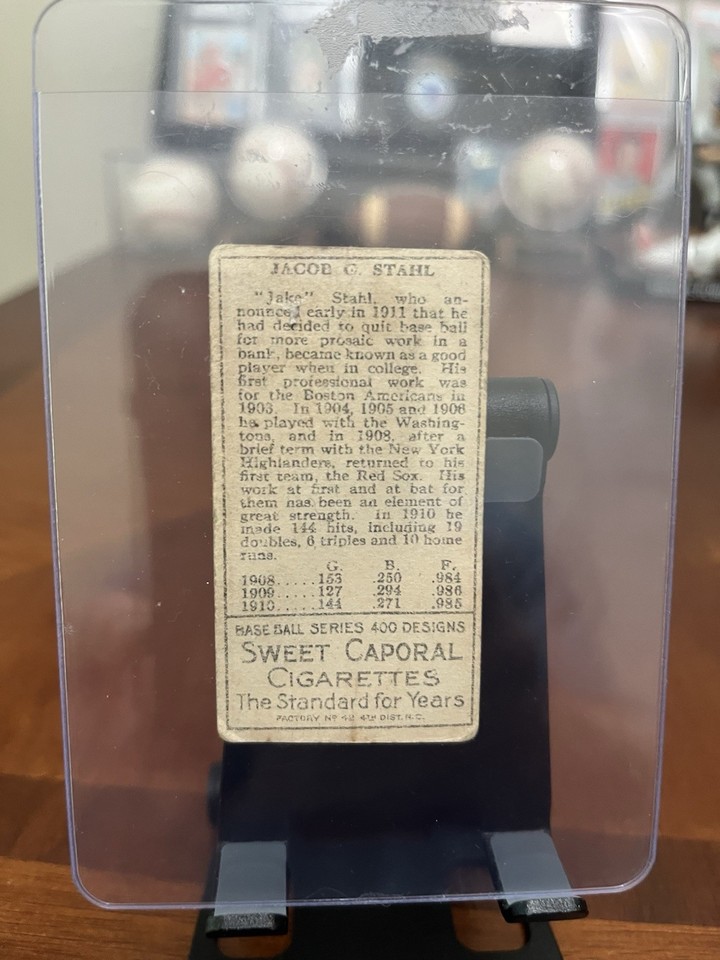 JACOB G. STAHL
"Jake" Stahl, who an-
nounced early in 1911 that he
had decided to quit base ball
for more prosaic work in a
bank, became known as a good
player when in college. His
first professional work was
for the Boston Americans in
1903. In 1904, 1905 and 1906
he played with the Washing-
tons, and in 1908, after a
brief term with the New York
Highlanders, returned to his
first team, the Red Sox. His
work at first and at bat for
them has been an element of
great strength. In 1910 he
made 144 hits, including 19
doubles, 6 triples and 10 home
runs.
G. B. F.
1908.....153 .250 .984
1909.....127 .294 .986
1910.....144 .271 .985
BASE BALL SERIES 400 DESIGNS
SWEET CAPORAL
CIGARETTES
The Standard for Years
FACTORY Nº 42 4TH DIST. N.C.